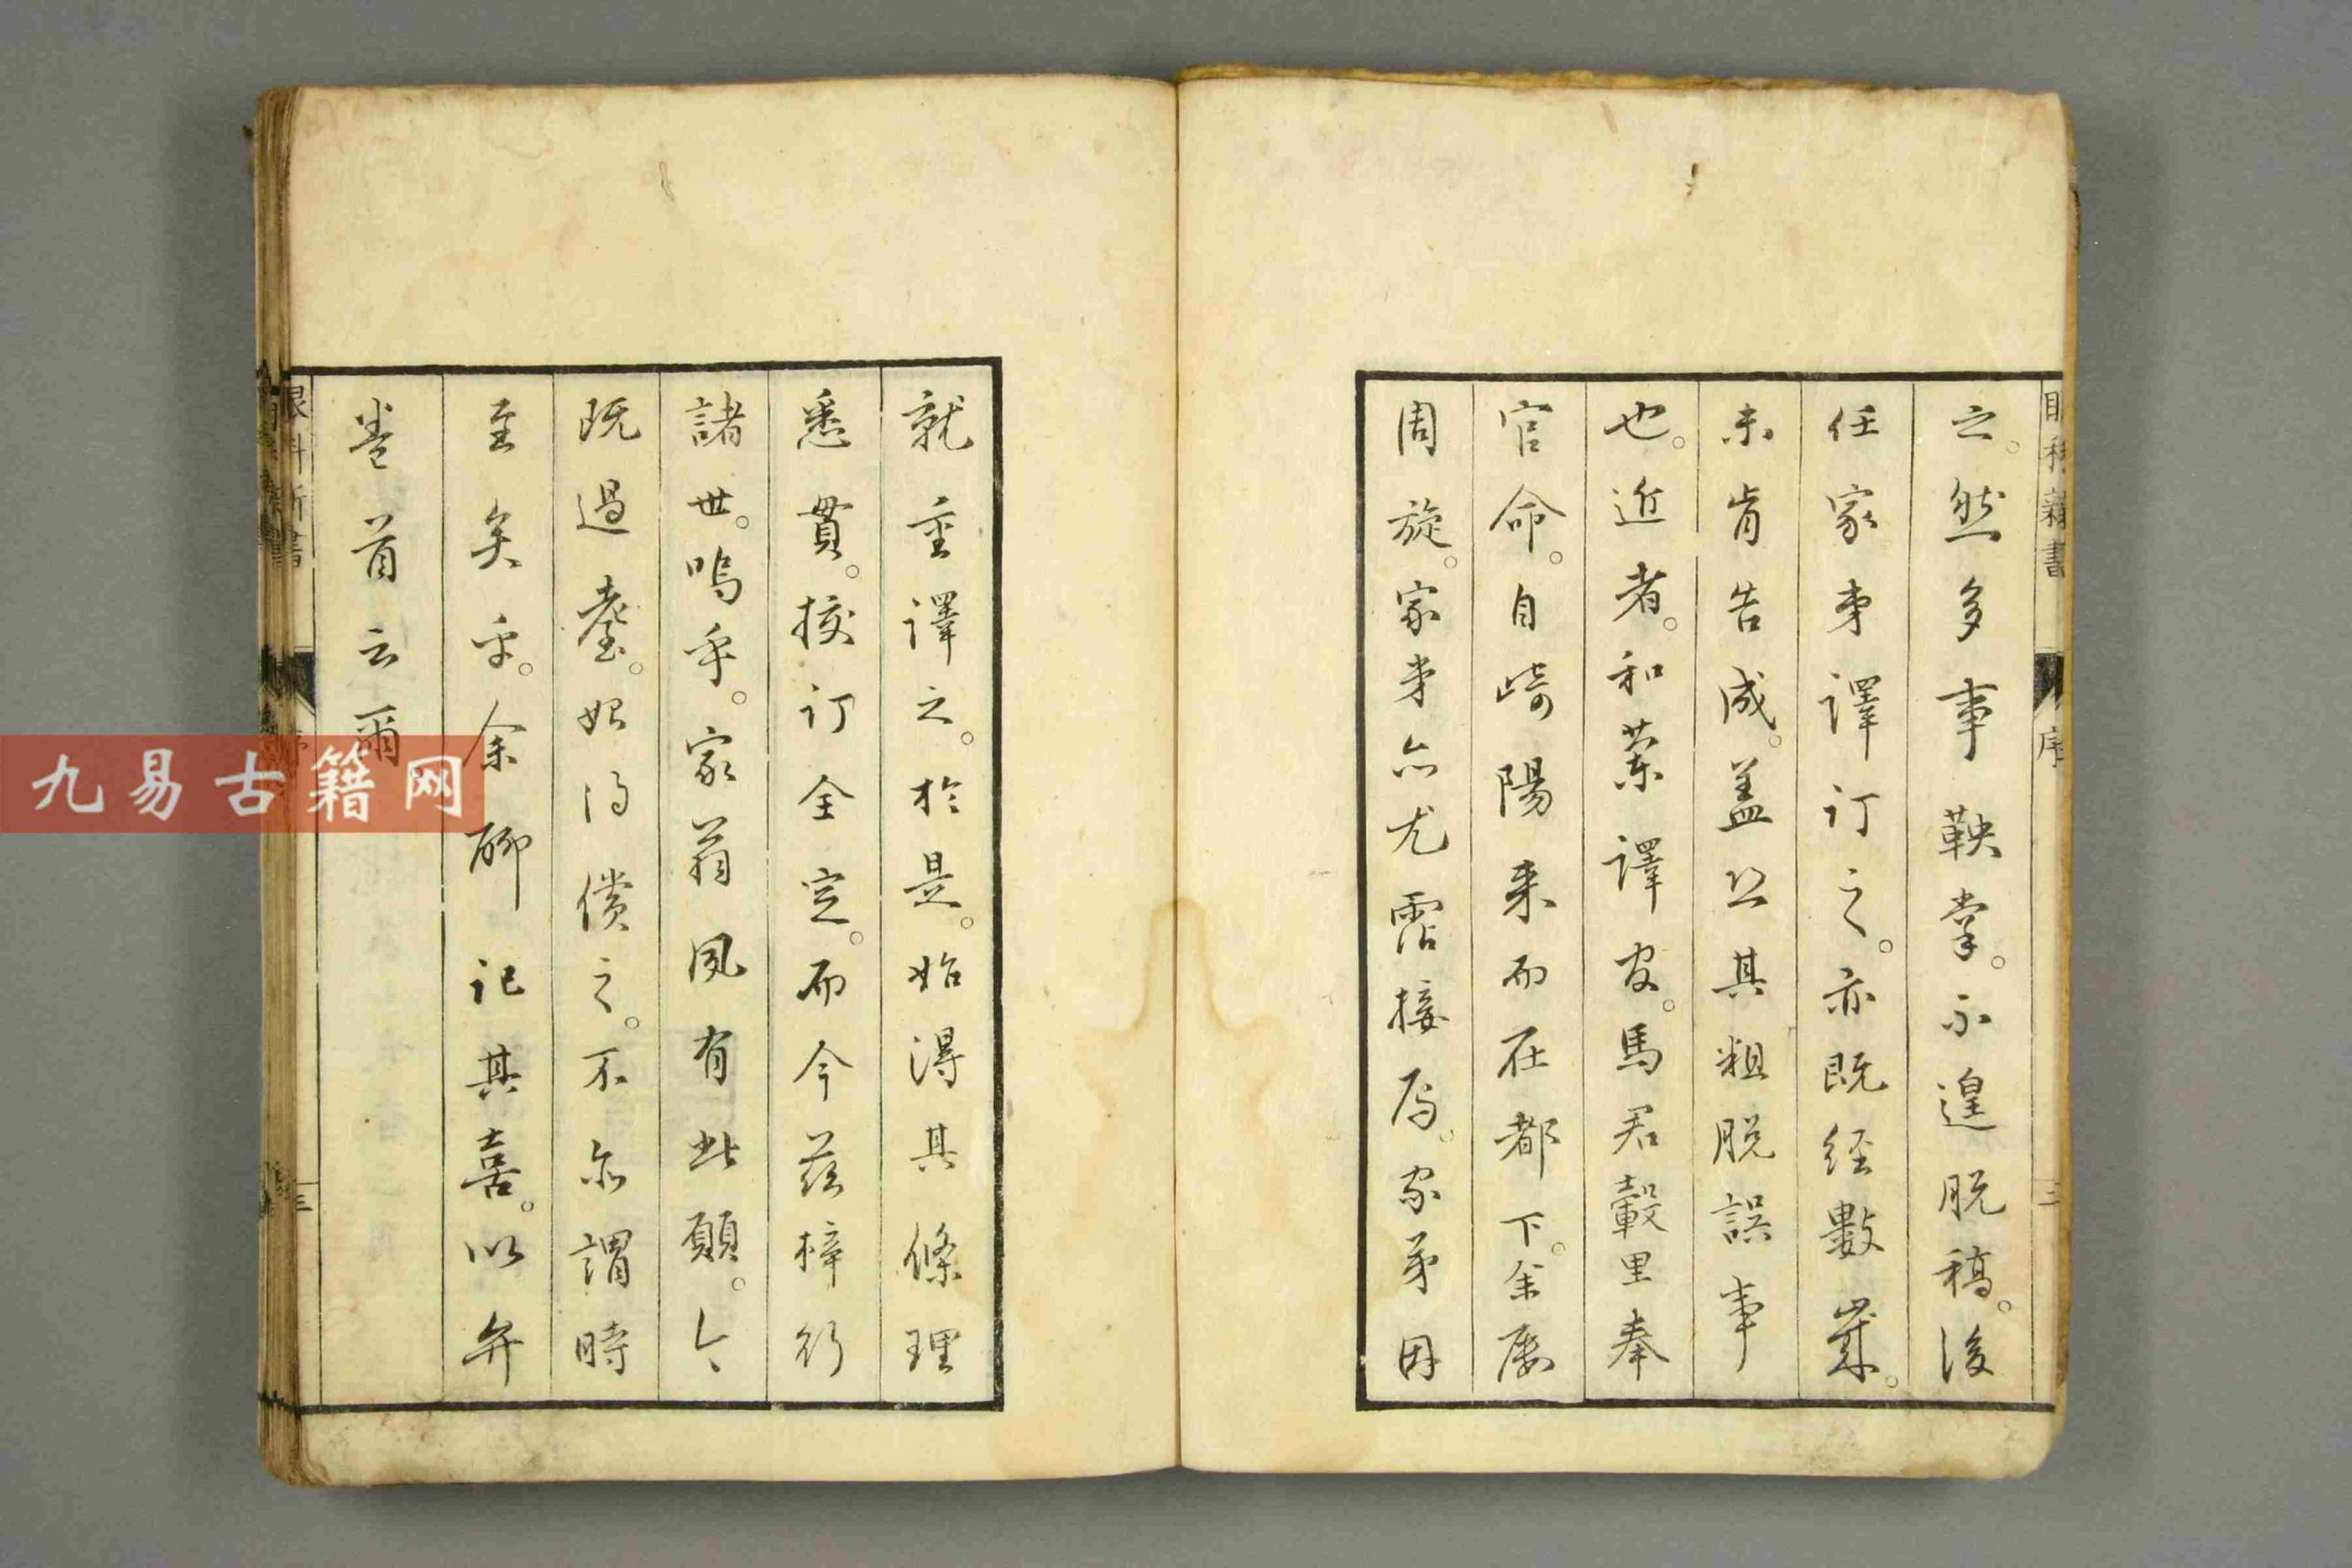 眼科新書
序
三
之。然多事鞅掌。不遑脱稿。後
任家弟譯訂之。亦既経數歳。
未肯告成。盖恐其粗脱誤事
也。近者。和蘭譯官。馬君轂里奉
官命。自崎陽来而在都下。余屢
周旋。家弟亦尤霑接焉。家弟因
就重譯之。於是。始得其條理
悉貫。挍訂全定。而今茲梓行
諸世。嗚乎。家翁夙有此願。今
既過耋。始得償之。不亦謂時
至矣乎。余聊記其喜。以弁
巻首云爾
眼科新書
三
九易古籍网